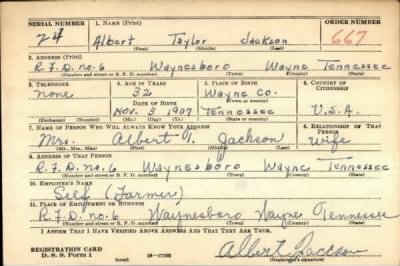 SERIAL NUMBER 1. NAME (Print) ORDER NUMBER
24 Albert Taylor Jackson 667
(First) (Middle) (Last)
2. ADDRESS (Print)
R.F.D. no. 6 Waynesboro Wayne Tennessee
(Number and street or R. F. D. number) (Town) (County) (State)
3. TELEPHONE 4. AGE IN YEARS 5. PLACE OF BIRTH 6. COUNTRY OF CITIZENSHIP
none 32 Wayne Co.
(Town or county)
DATE OF BIRTH
Nov. 3 1907 Tennessee U.S.A.
(Exchange) (Number) (Mo.) (Day) (Yr.) (State or country)
7. NAME OF PERSON WHO WILL ALWAYS KNOW YOUR ADDRESS 8. RELATIONSHIP OF THAT PERSON
Mrs. Albert T. Jackson wife
(Mr., Mrs., Miss) (First) (Middle) (Last)
9. ADDRESS OF THAT PERSON
R.F.D. no. 6 Waynesboro Wayne Tennessee
(Number and street or R. F. D. number) (Town) (County) (State)
10. EMPLOYER'S NAME
Self (Farmer)
11. PLACE OF EMPLOYMENT OR BUSINESS
R.F.D. no. 6 Waynesboro Wayne Tennessee
(Number and street or R. F. D. number) (Town) (County) (State)
I AFFIRM THAT I HAVE VERIFIED ABOVE ANSWERS AND THAT THEY ARE TRUE.
REGISTRATION CARD
D. S. S. Form 1 (over) Albert Jackson
(Registrant's signature)